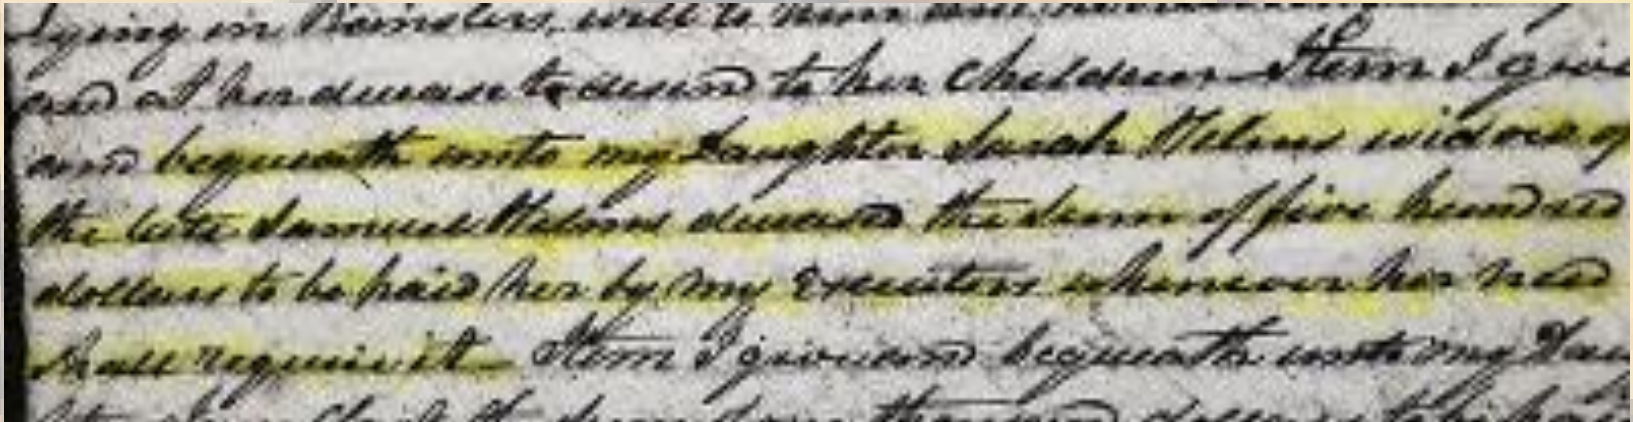 lying in
and at her decease to desend to her Children Item I give
and bequeath unto my Daughter Sarah Helms widow of
the late Samuel Helms deceased the sum of five hundred
dollars to be paid her by my Executors whenever her need
shall require it Item I give and bequeath unto my Dau
dollars to be paid